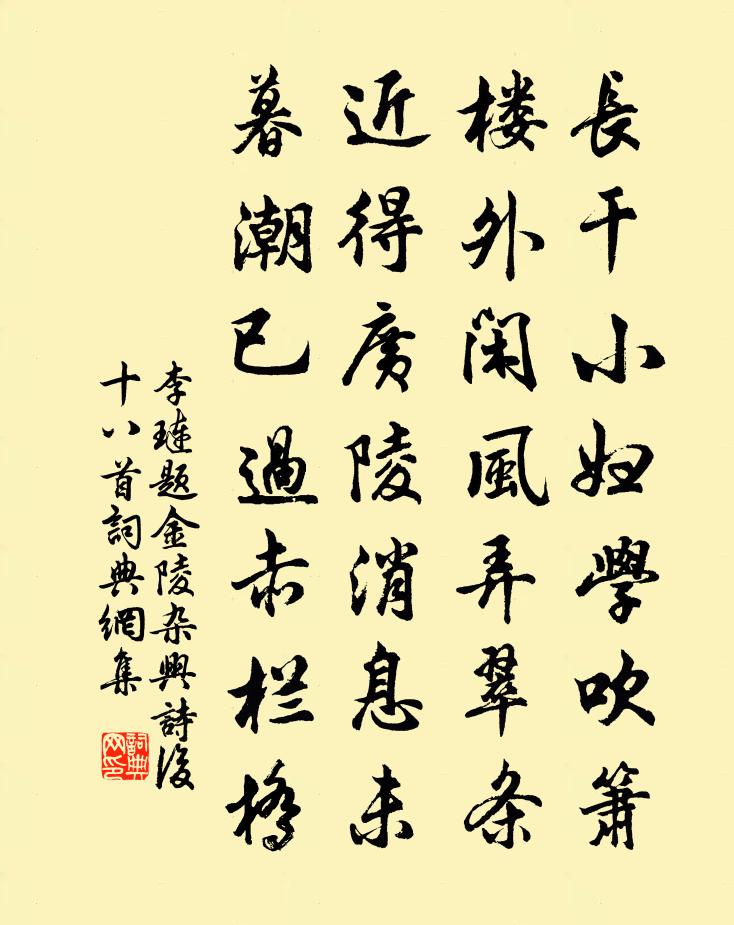 長干小妇學吹箫
楼外闲風弄翠条
近得廣陵消息未
暮潮已過赤栏橋
李璉题金陵杂興詩後
十八首詞典網集
詞典网印